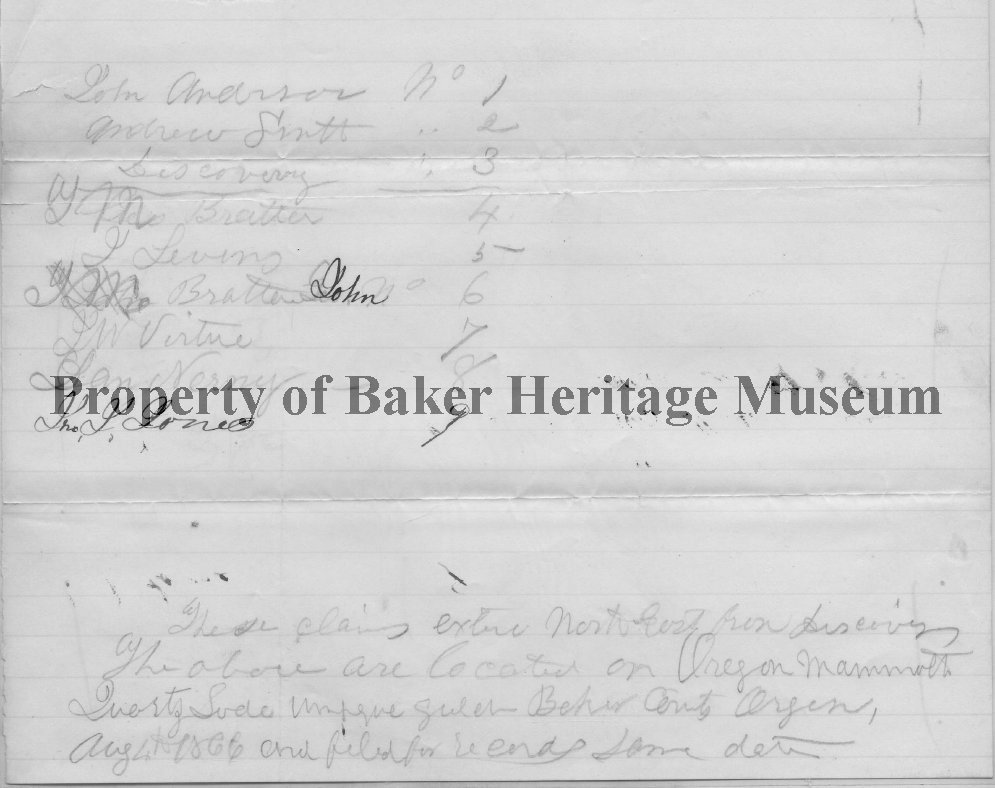 John Anderson No 1
Andrew Smith " 2
Discovery " 3
Thos Bratten 4
J Levens 5
Bratten John No 6
J W Virtue 7
8
Property of Baker Heritage Museum
Thos, J. Jones 9
These claims exten North East from Discovery
The above are located on Oregon Mammoth
Quartz Lode Baker County Oregon,
Aug 4th 1866 and filed for records same date